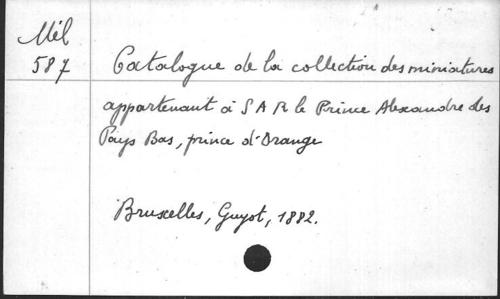 Mél
587
Catalogue de la collection des miniatures
appartenant à S A R le Prince Alexandre des
Pays Bas, prince d'Orange
Bruxelles, Guyot, 1882.